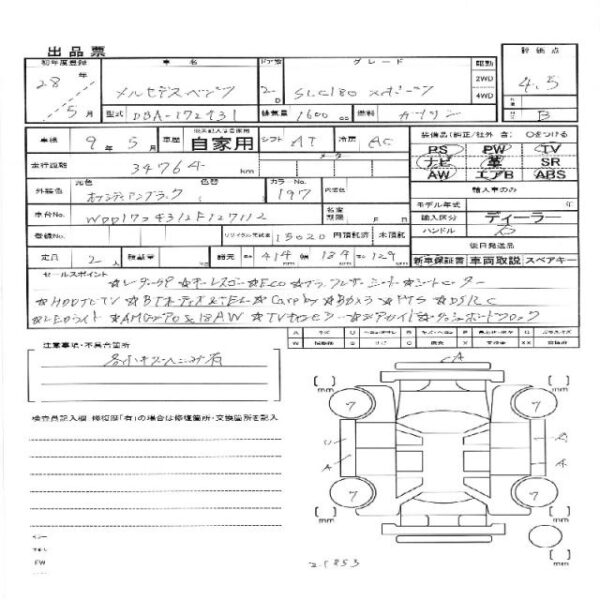 出品票
初年度登録 車名 ドア数 グレード 駆動 評価点
28年 メルセデスベンツ 2D SLC180 スポーツ 2WD 4WD 4.5
5月 型式 DBA-172431 排気量 1600cc 燃料 ガソリン B
車検 9年5月 車歴 自家用 シフト AT 冷房 AC 装備品(純正/社外 含) ○をつける
PS PW TV
走行距離 34764 km メータ ナビ 革 SR
AW エアB ABS
外装色 元色 色替 カラーNo. 197 内装色 輸入車のみ
オブシディアンブラック
モデル年式 年
車台No. WDD1724312F127112 名変期限 月 日 輸入区分 ディーラー
登録No. リサイクル預託金 15020 円預託済 未預託 ハンドル 右
後日発送品
定員 2人 積載量 諸元 長 414 cm 幅 184 cm 高 129 cm 新車保証書 車両取説 スペアキー
セールスポイント
☆レーダーSP ☆キーレスゴー ☆Eco ☆ブラックレザーシート ☆シートヒーター
☆HDDナビTV ☆BTオーディオ&TEL ☆CarPlay ☆Bカメラ ☆PTS ☆DSRC
☆LEDライト ☆AMGエアロ&18AW ☆TVキャンセラー
注意事項・不具合箇所
各小キズヘコミ有
CA
検査員記入欄 修復歴「有」の場合は修復箇所・交換箇所を記入
[ ] mm 7 7 [ ] mm
U
A A
[ ] mm 7 7 [ ] mm
mm
FW
21853